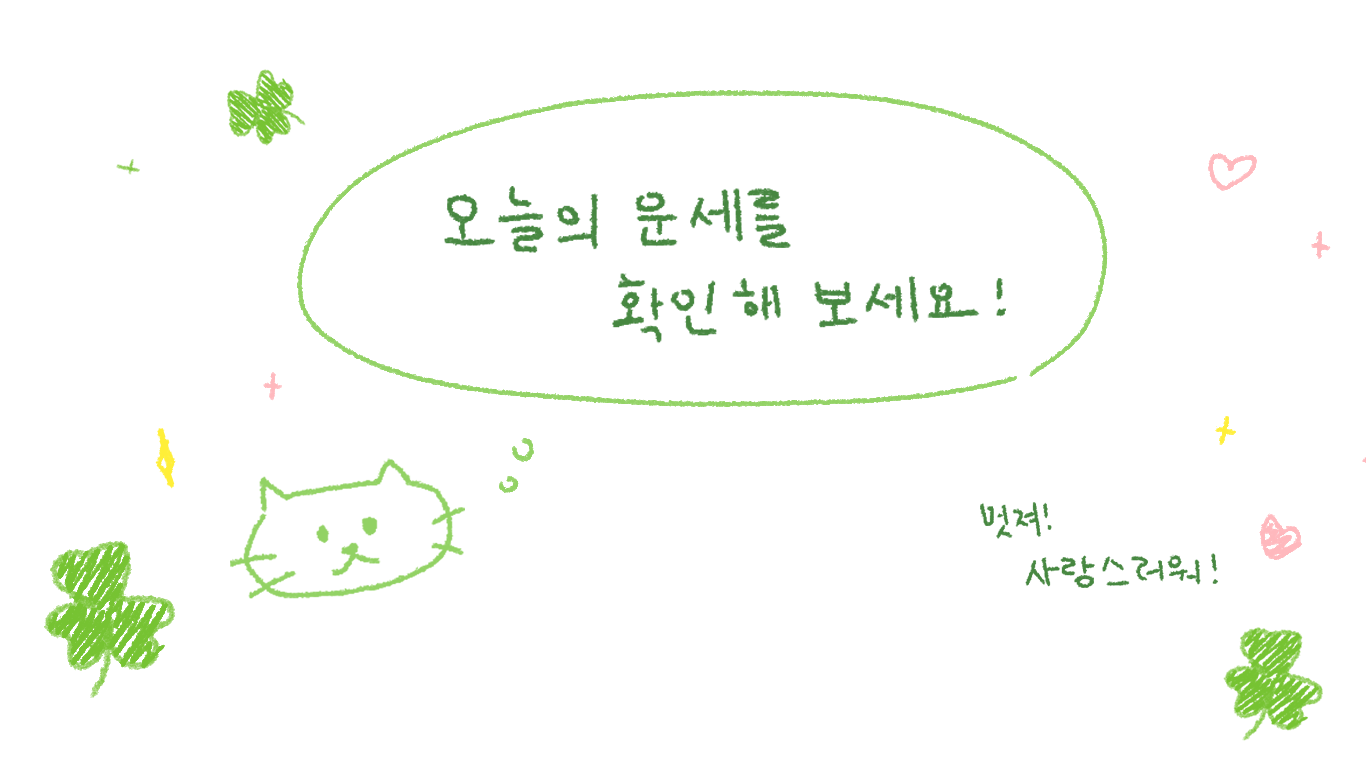 오늘의 운세를
확인해 보세요!
멋져!
사랑스러워!